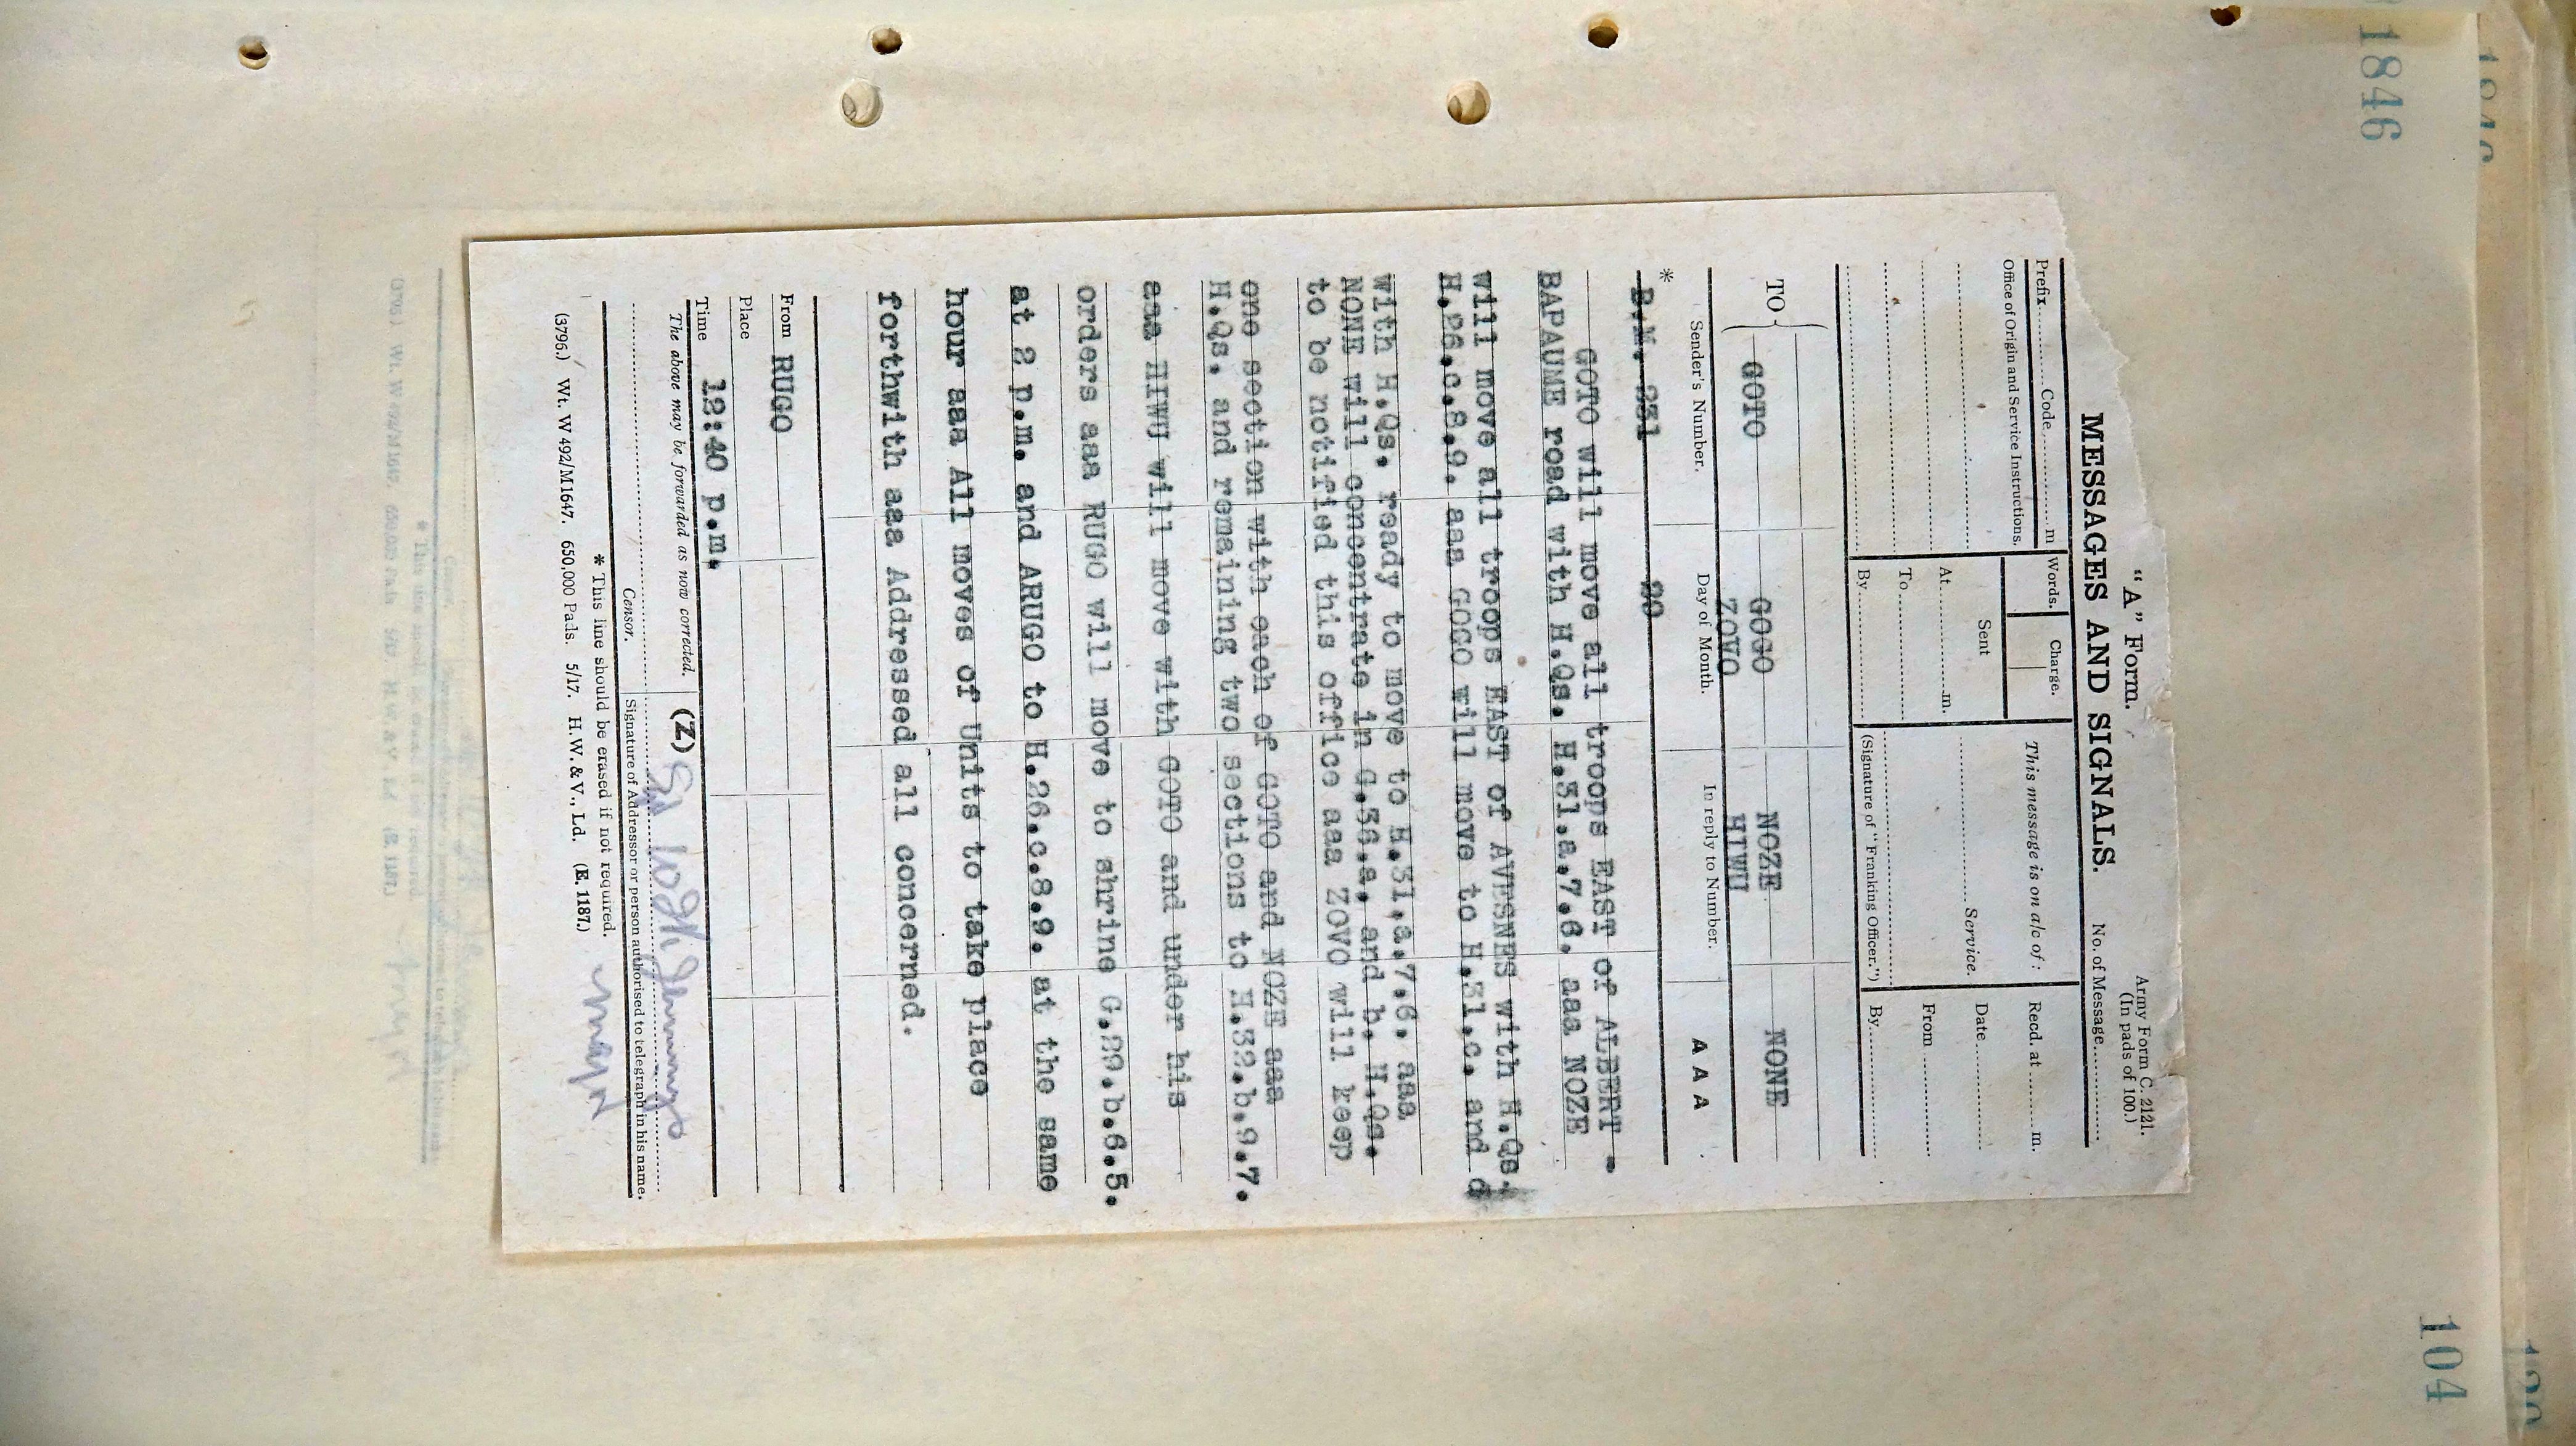 1846
104
"A" Form.
Army Form C. 2121.
(In pads of 100.)
MESSAGES AND SIGNALS.
No. of Message
Prefix Code m
Words.
Charge.
This message is on a/c of :
Recd. at m.
Office of Origin and Service Instructions.
Sent
Service.
Date
At m.
From
To
By
(Signature of "Franking Officer.")
By
TO
GOTO GOGO NOZE NONE
ZOVO HIWU
Sender's Number. Day of Month. In reply to Number. A A A
* B.M. 231 20
GOTO will move all troops EAST of ALBERT -
BAPAUME road with H.Qs. H.31.a.7.6. aaa NOZE
will move all troops EAST of AVESNES with H.Qs.
H.26.c.8.9. aaa GOGO will move to H.31.c. and d
with H.Qs. ready to move to H.31.a.7.6. aaa
NONE will concentrate in G.36.a. and b. H.Qs.
to be notified this office aaa ZOVO will keep
one section with each of GOTO and NOZE aaa
H.Qs. and remaining two sections to H.32.b.9.7.
aaa HIWU will move with GOTO and under his
orders aaa RUGO will move to shrine G.29.b.6.5.
at 2 p.m. and ARUGO to H.26.c.8.9. at the same
hour aaa All moves of Units to take place
forthwith aaa Addressed all concerned.
From RUGO
Place
Time 12:40 p.m.
The above may be forwarded as now corrected. (Z)
Censor. Signature of Addressor or person authorised to telegraph in his name.
* This line should be erased if not required.
(3796.) Wt. W 492/M1647. 650,000 Pads. 5/17. H.W. & V., Ld. (E. 1187.)